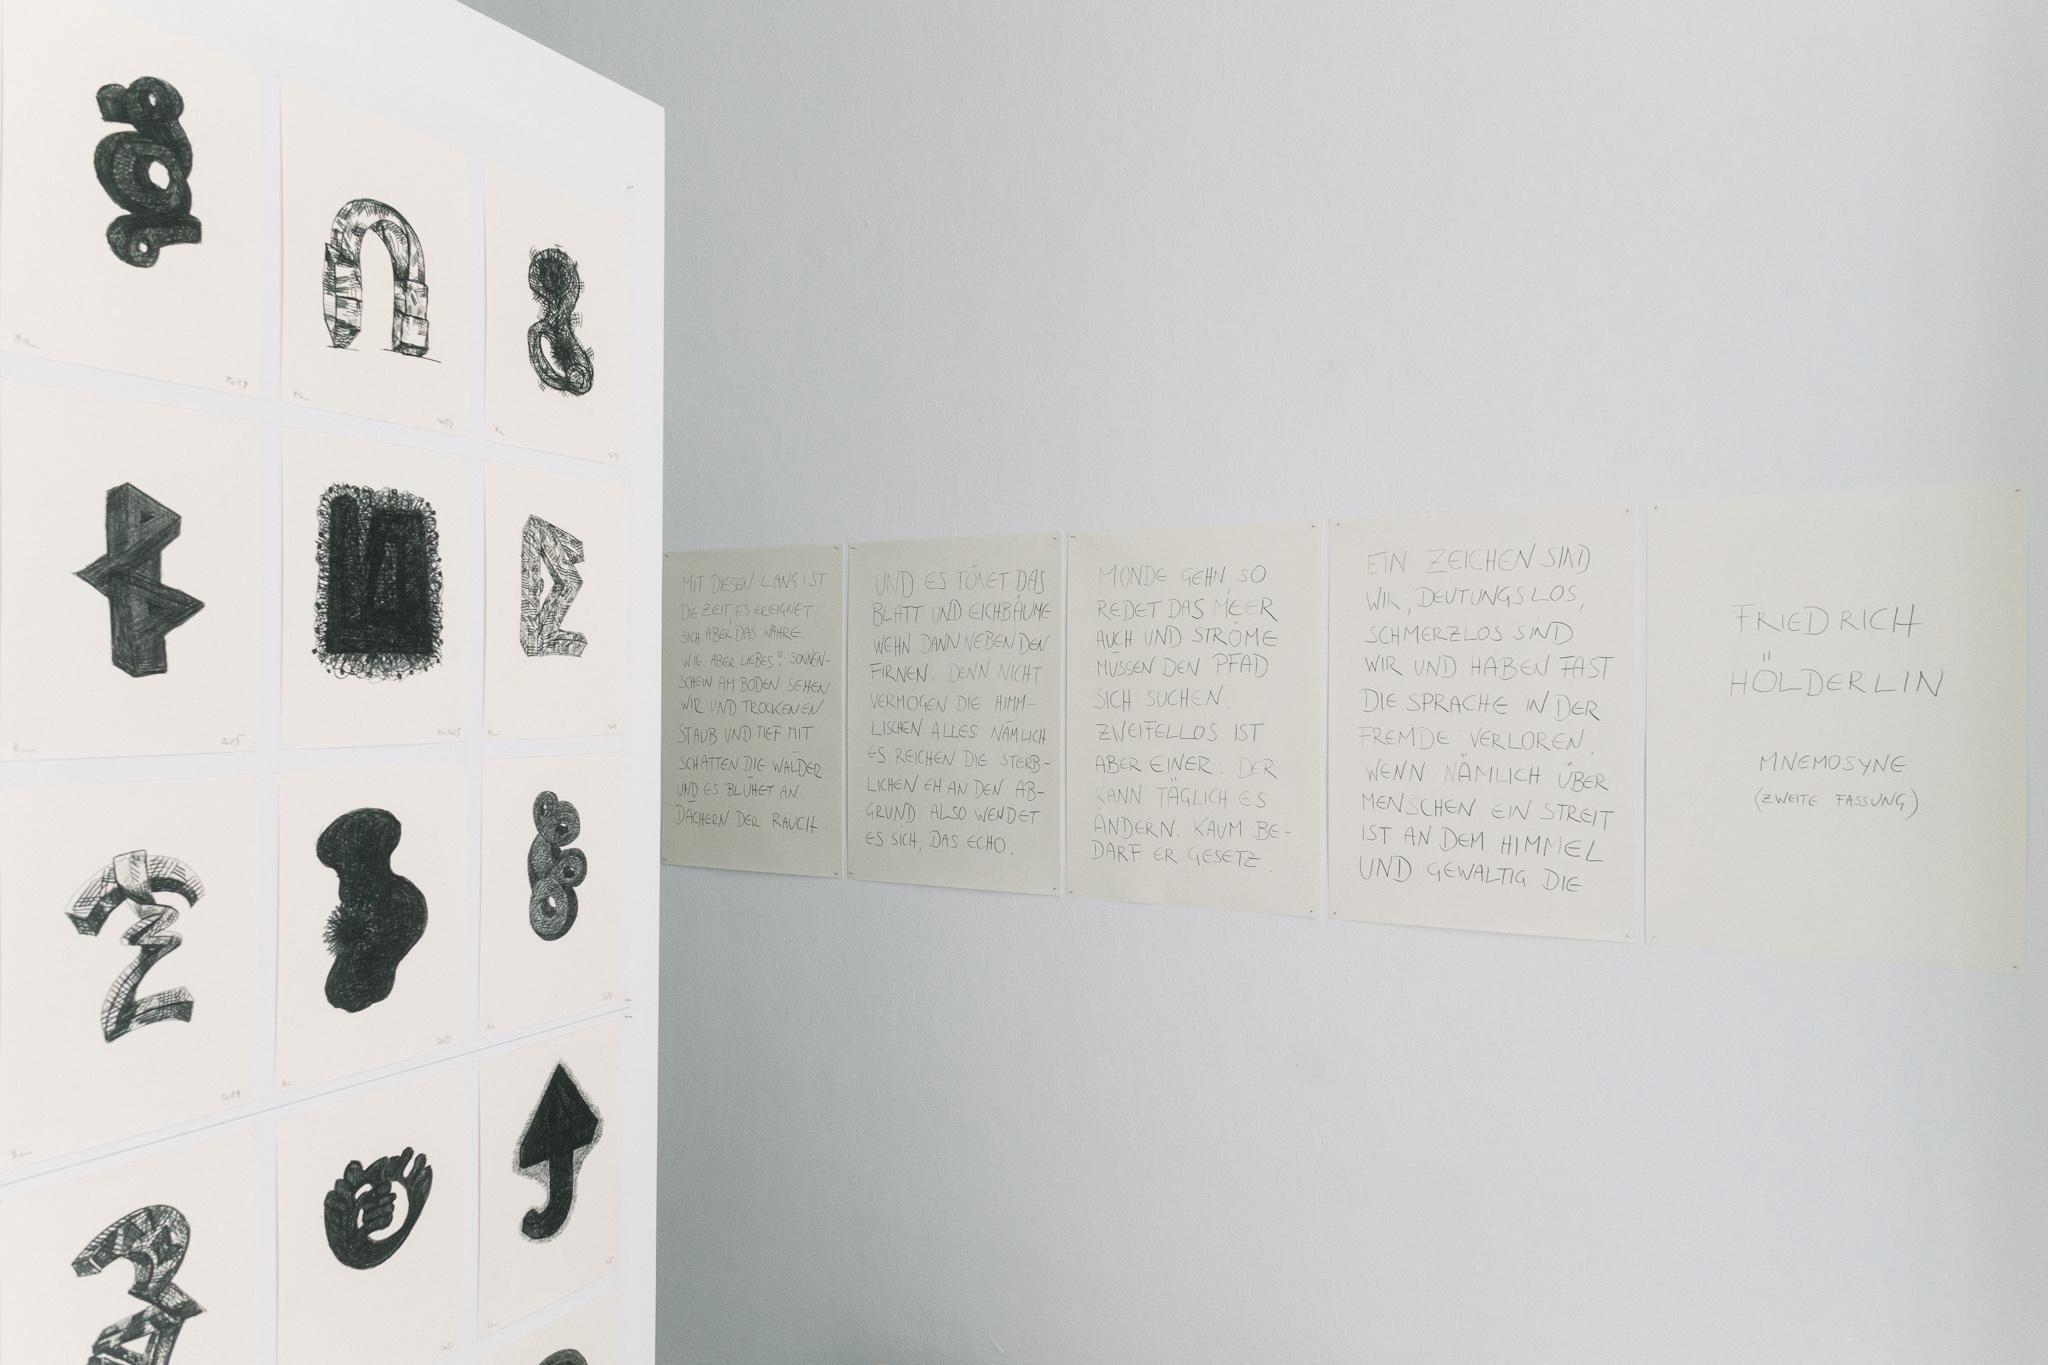 FRIEDRICH
HÖLDERLIN
MNEMOSYNE
(ZWEITE FASSUNG)
EIN ZEICHEN SIND
WIR, DEUTUNGSLOS,
SCHMERZLOS SIND
WIR UND HABEN FAST
DIE SPRACHE IN DER
FREMDE VERLOREN.
WENN NÄMLICH ÜBER
MENSCHEN EIN STREIT
IST AN DEM HIMMEL
UND GEWALTIG DIE
MONDE GEHN, SO
REDET DAS MEER
AUCH UND STRÖME
MÜSSEN DEN PFAD
SICH SUCHEN.
ZWEIFELLOS IST
ABER EINER. DER
KANN TÄGLICH ES
ÄNDERN. KAUM BE-
DARF ER GESETZ.
UND ES TÖNET DAS
BLATT UND EICHBÄUME
WEHN DANN NEBEN DEN
FIRNEN. DENN NICHT
VERMÖGEN DIE HIMM-
LISCHEN ALLES NÄMLICH
ES REICHEN DIE STERB-
LICHEN EH AN DEN AB-
GRUND. ALSO WENDET
ES SICH, DAS ECHO.
MIT DIESEN. LANG IST
DIE ZEIT, ES EREIGNET
SICH ABER DAS WAHRE.
WIE ABER LIEBES? SONNEN-
SCHEIN AM BODEN SEHEN
WIR UND TROCKENEN
STAUB UND TIEF MIT
SCHATTEN DIE WÄLDER
UND ES BLÜHET AN
DÄCHERN DER RAUCH